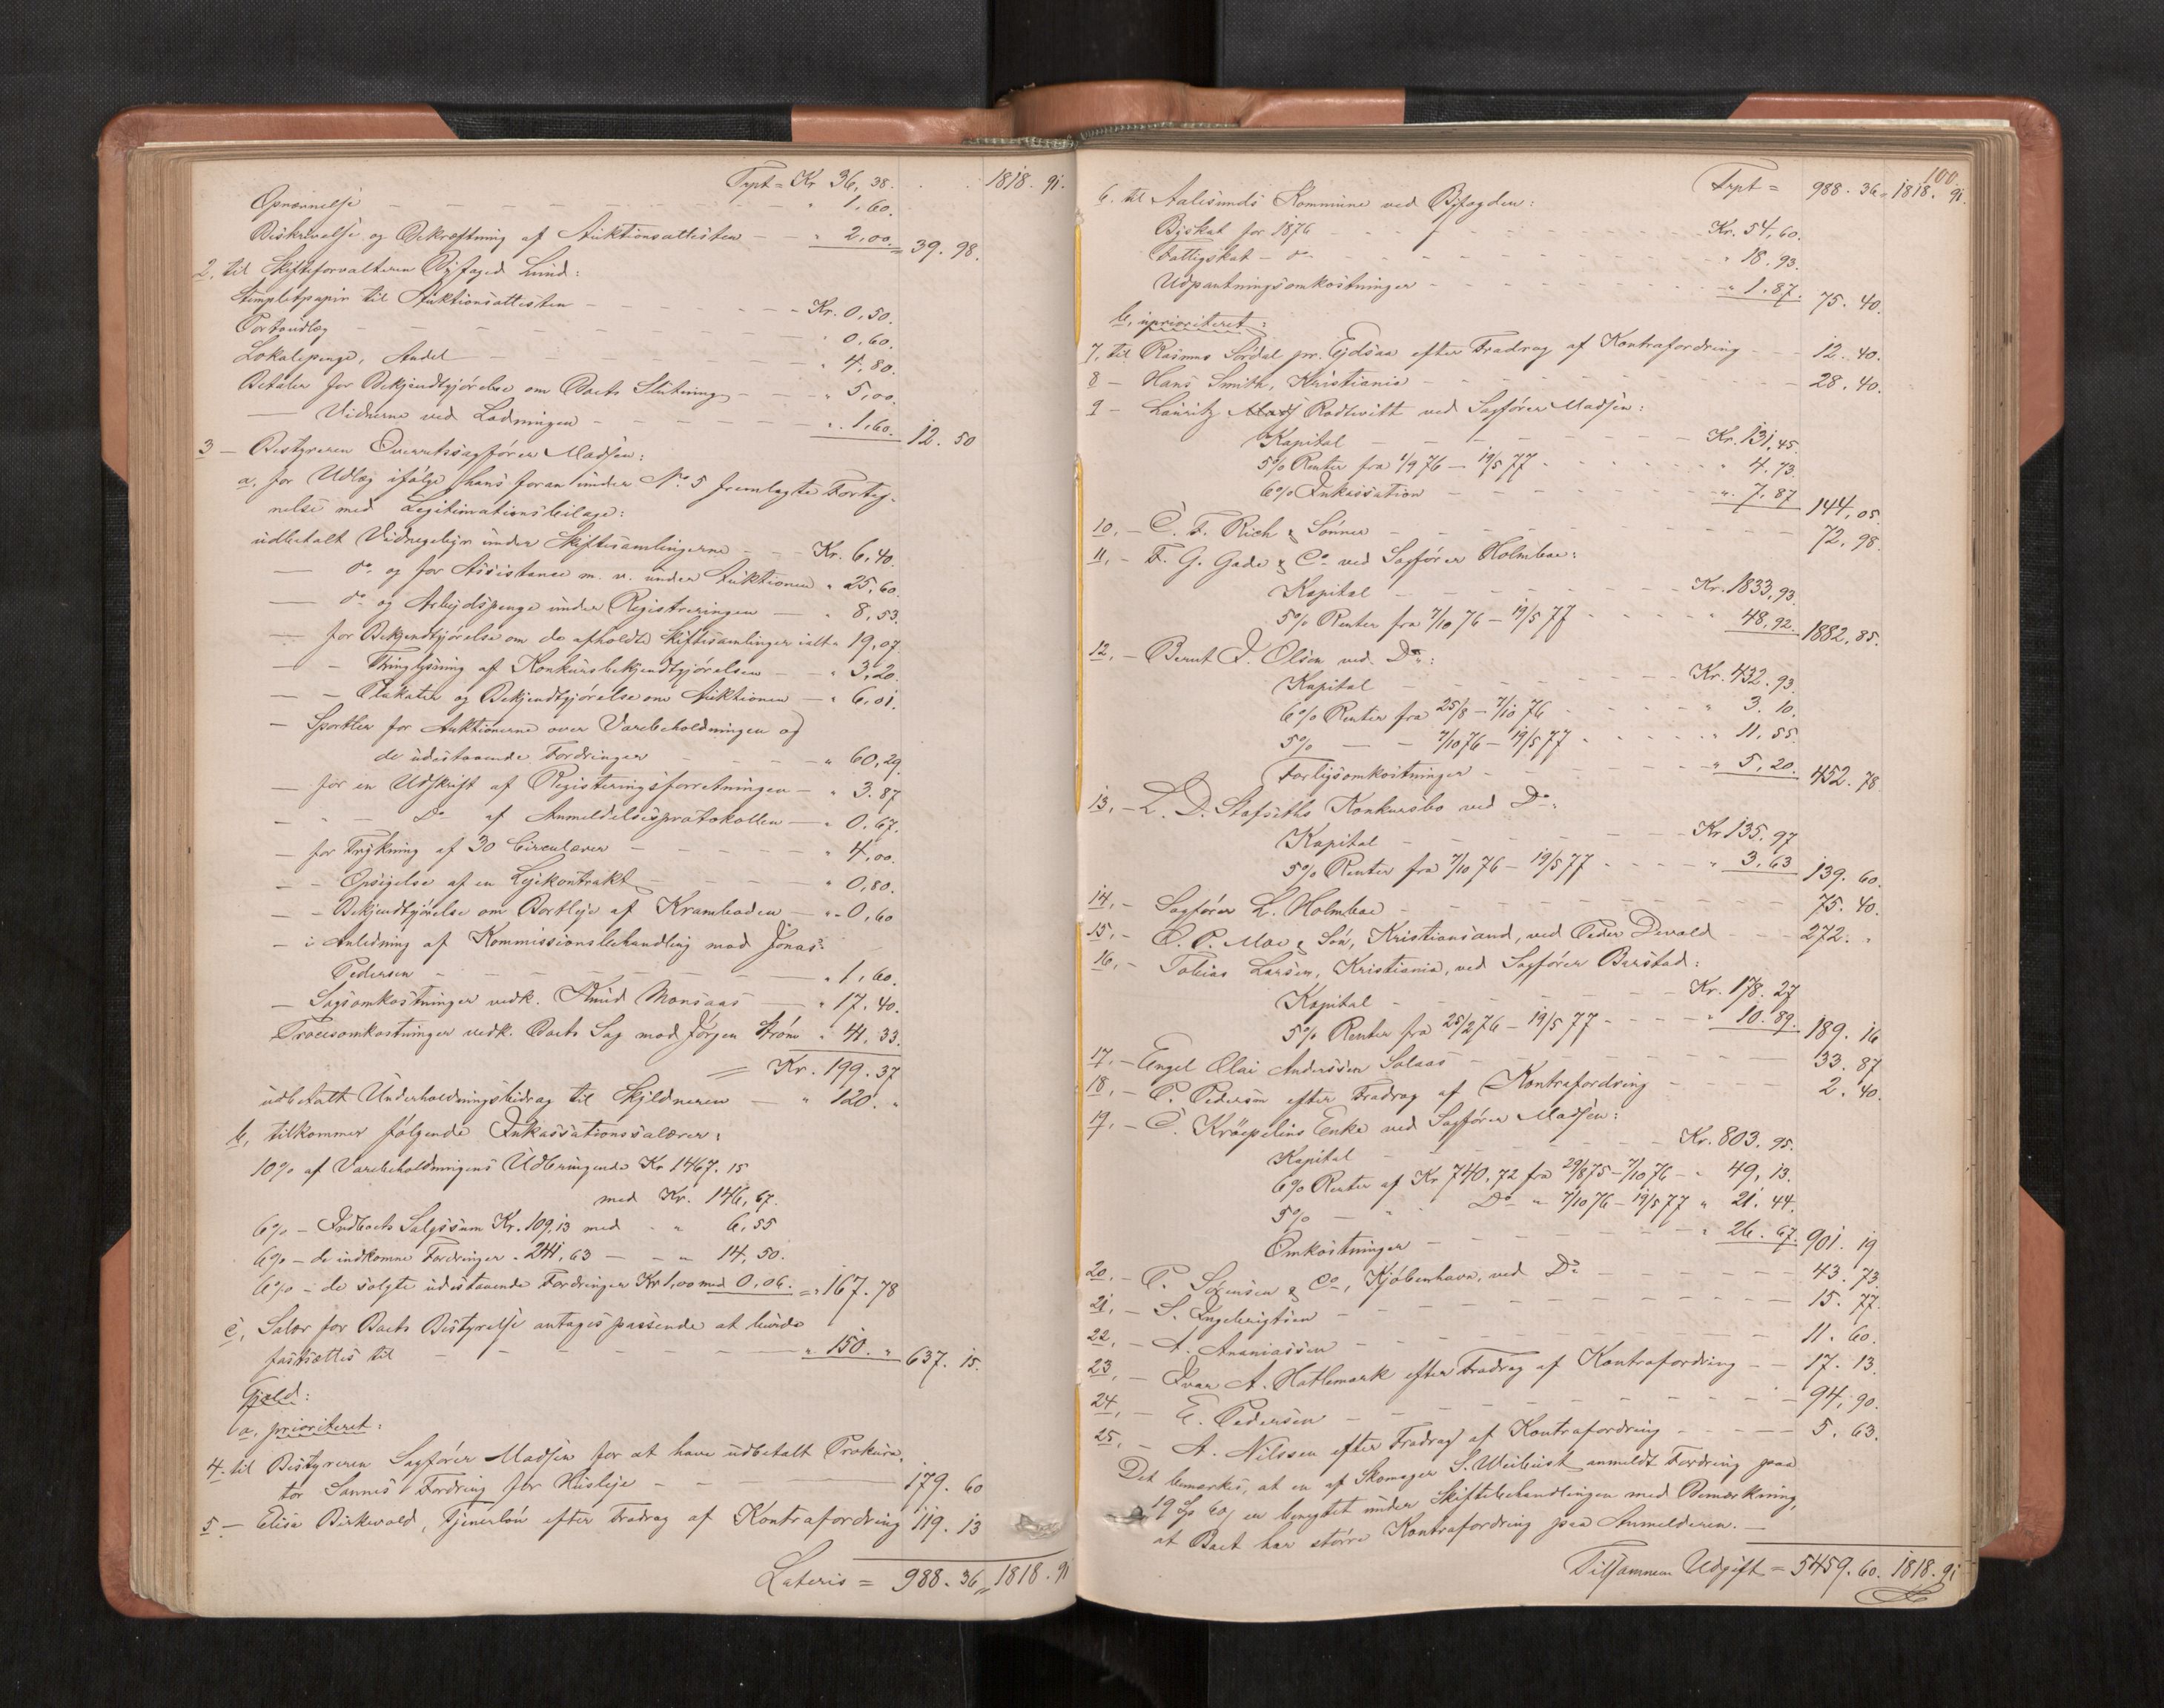 Trpt = Kr 36, 38. 1818. 91.
Opnævnelse - - - " 1. 60.
Beskrivelse og Bekræftning af Auktionsattesten - " 2,00. = 39. 98.
2, til Skifteforvalteren Byfoged Lund:
Stempletpapir til Auktionsattesten - - - Kr. 0,50.
Portoudlæg - - - " 0,60.
Lokalepenge, Andel - - - " 4,80.
Betaler for Bekjendtgjørelse om Boets Slutning - - " 5,00.
— Vidnerne ved Ladningen - - - " 1,60. 12. 50
3 — Bestyreren Overretssagfører Madsen:
a, for Udlæg ifølge hans foran under No. 5 fremlagte Forteg-
nelse med Legitimationsbilage:
udbetalt Vidnegebyr under Skiftesamlingerne - - Kr. 6,40.
— do. og for Assistance m. v. under Auktionen " 25,60.
— do og Arbejdspenge under Registreringen — " 8,53.
— for Bekjendtgjørelse om de afholdte Skiftesamlinger ialt " 19,07.
— - Thinglysning af Konkursbekjendtgjørelsen - - " 3,20.
— - Plakater og Bekjendtgjørelse om Auktionen — " 6,01.
— Sportler for Auktionerne over Varebeholdningen og
de udestaaende Fordringer - - - " 60,29.
— for en Udskrift af Registeringsforretningen — " 3.87
— " — Do af Anmeldelsesprotokollen — " 0,67.
— for Trykning af 30 Circulærer - - - " 4,00.
— - Opsigelse af en Lejekontrakt - - - " 0,80.
— - Bekjendtgjørelse om Bortleje af Kramboden — " 0,60
— i Anledning af Kommissionsbehandling mod Jonas
Pedersen - - - " 1,60.
— Sagsomkostninger vedk. Knud Monsaas — " 17.40.
Procesomkostninger vedk. Boets Sag mod Jørgen Strøm " 41.33.
= Kr. 199.37
udbetalt Underholdningsbidrag til Skyldneren — " 120. "
b, tilkommer følgende Inkassationssalærer:
10% af Varebeholdningens Udbringende Kr 1467.15
med Kr. 146,67.
6% — Indboets Salgssum Kr. 109,13 med " 6,55
6% — de indkomne Fordringer " 241,63 — " 14,50.
6% — de solgte udestaaende Fordringer Kr 1,00 med 0,06. = " 167.78
c, Salær for Boets Bestyrelse antages passende at burde
fastsættes til - - - " 150. " 637. 15.
Gjæld:
a, prioriteret:
4. til Bestyreren Sagfører Madsen for at have udbetalt Prokura-
tor Sannes Fordring for Husleje - - 179. 60
5 — Elisa Birkevold, Tjenerløn efter Fradrag af Kontrafordring 119. 13
Lateris = 988. 36 „ 1818. 91
100.
Trpt = 988. 36 „ 1818. 91.
6. til Aalesunds Kommune ved Byfogden:
Byskat for 1876 - - - Kr. 54,60.
Fattigskat - do - - - " 18.93.
Udpantningsomkostninger - - - " 1.87. 75. 40.
b, uprioriteret:
7, til Rasmus Sørdal pr. Ejdsaa efter Fradrag af Kontrafordring - - 12. 40.
8 — Hans Smith, Kristiania - - - 28. 40.
9 — Lauritz Mads Rodtwitt ved Sagfører Madsen:
Kapital - - - Kr. 131,45.
5% Renter fra 1/9 76 — 19/5 77 - - - " 4.73.
6% Inkassation - - - " 7.87 144,05.
10, — C. F. Rich & Sønner - - - 72. 98.
11, — F. G. Gade & Co ved Sagfører Holmboe:
Kapital - - - Kr. 1833,93.
5% Renter fra 7/10 76 — 19/5 77 - - - " 48,92. 1882,85.
12, — Bernt J. Olsen ved Do:
Kapital - - - Kr. 432.93.
6% Renter fra 25/8 — 7/10 76 - - - " 3. 10.
5% — - 7/10 76 — 19/5 77 - - - " 11. 55.
Forligsomkostninger - - - " 5,20. 452. 78
13, — L. D. Stafseths Konkursbo ved Do:
Kapital - - - Kr 135.97
5% Renter fra 7/10 76 — 19/5 77 - - - " 3.63 139. 60.
14, — Sagfører L. Holmboe - - - 75. 40.
15, — C. P. Moe & Søn, Kristiansand, ved Peder Devold - - 272. "
16, — Tobias Larsen, Kristiania, ved Sagfører Barstad:
Kapital - - - Kr. 178. 27
5% Renter fra 25/2 76 — 19/5 77 - - - " 10.89. 189. 16
17, — Engel Olai Anderssen Solaas - - - 33. 87
18, — P. Pedersen efter Fradrag af Kontrafordring - - - 2. 40.
19, — C. Kröepelins Enke ved Sagfører Madsen:
Kapital - - - Kr. 803. 95.
6% Renter af Kr 740,72 fra 29/8 75 — 7/10 76 - " 49,13.
5% — " Do " 7/10 76 — 19/5 77 " 21.44.
Omkostninger - - - " 26. 67. 901. 19
20, — P. Sørensen & Co, Kjøbenhavn, ved Do - - - 43. 73.
21, — S. Ingebrigtsen - - - 15. 77.
22, — A. Ananiassen - - - 11. 60.
23, — Ivar A. Hatlemark efter Fradrag af Kontrafordring - - 17. 13.
24, — E. Pedersen - - - 94, 90.
25, — A. Nilssen efter Fradrag af Kontrafordring - - - 5. 63.
Det bemærkes, at en af Skomager S. anmeldt Fordring paa
19 60 er benegtet under Skiftebehandlingen med Bemærkning,
at Boet har større Kontrafordring paa Anmelderen. —
Tilsammen Udgift = 5459.60. 1818. 91